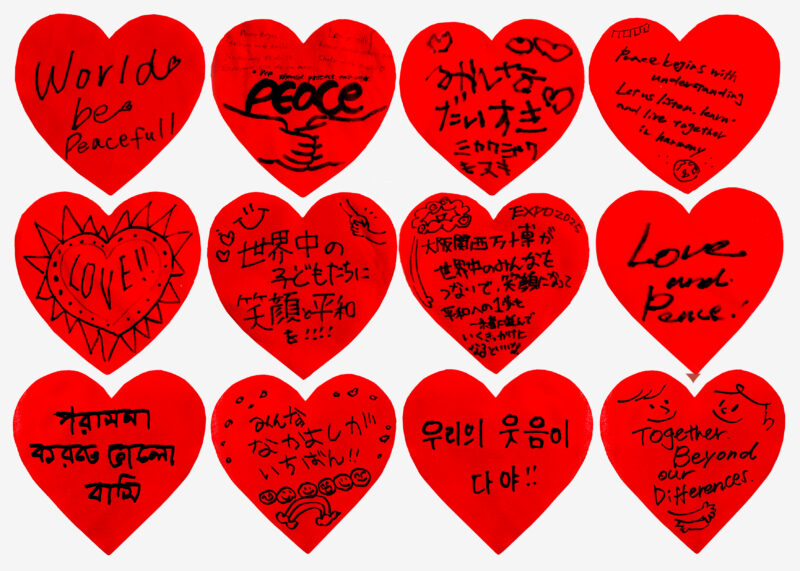 World
be
Peaceful!
PEACE
みんな
だいすき
Peace begins with
understanding
Let us listen, learn
and live together
in harmony
LOVE!!
世界中の
子どもたちに
笑顔と平和
を!!!!
EXPO2025
大阪関西万十専が
世界中のみんなも
つないで、笑顔になって
平和への1歩も
一緒に並んで
いくきっかけに
なるといいな
Love
and
Peace!
পরামমা
করতে ভোলো
বাসি
みんな
なかよしが
いちばん!!
우리의 웃음이
다야!!
Together
Beyond
our
Differences.